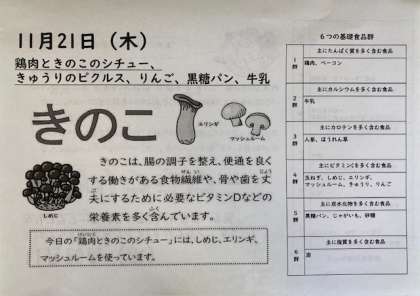 11月21日（木）
鶏肉ときのこのシチュー、
きゅうりのピクルス、りんご、黒糖パン、牛乳
きのこ
エリンギ
マッシュルーム
しめじ
きのこは、腸の調子を整え、便通を良く
する働きがある食物繊維や、骨や歯を丈
夫にするために必要なビタミンDなどの
栄養素を多く含んでいます。
今日の「鶏肉ときのこのシチュー」には、しめじ、エリンギ、
マッシュルームを使っています。
6つの基礎食品群
1群
主にたんぱく質を多く含む食品
鶏肉、ベーコン
2群
主にカルシウムを多く含む食品
牛乳
3群
主にカロテンを多く含む食品
人参、ほうれん草
4群
主にビタミンCを多く含む食品
玉ねぎ、しめじ、エリンギ、
マッシュルーム、きゅうり、りんご
5群
主に炭水化物を多く含む食品
黒糖パン、じゃがいも、砂糖
6群
主に脂質を多く含む食品
油